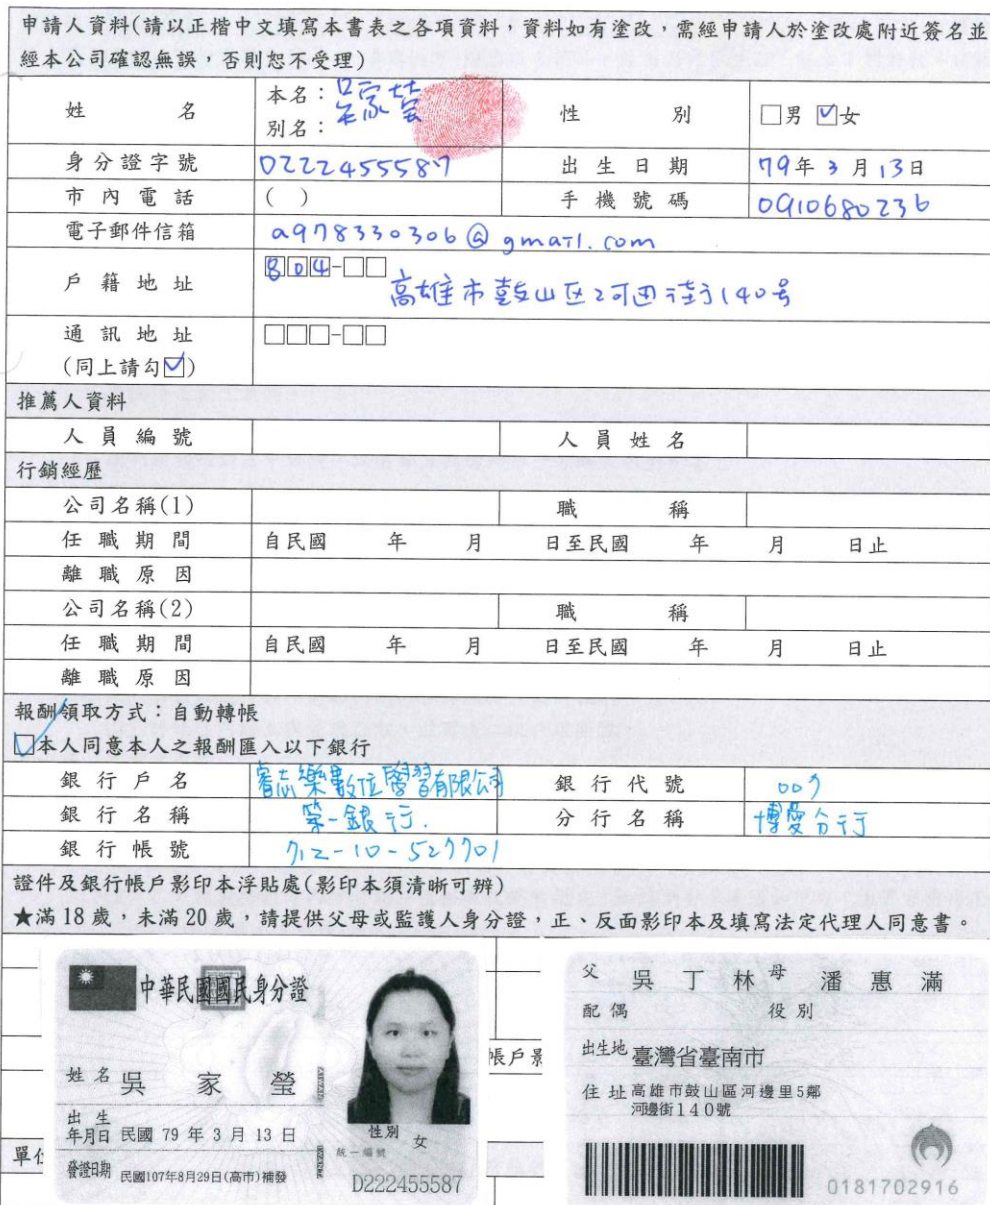 申請人資料(請以正楷中文填寫本書表之各項資料，資料如有塗改，需經申請人於塗改處附近簽名並
經本公司確認無誤，否則恕不受理)
姓 名 本名：吳家瑩 別名： 性 別 □男 ☑女
身分證字號 D222455587 出生日期 79年3月13日
市內電話 ( ) 手機號碼 0910680236
電子郵件信箱 a978330306@gmail.com
戶籍地址 804-□□
高雄市鼓山区河边街140号
通訊地址 □□□-□□
(同上請勾☑)
推薦人資料
人員編號 人員姓名
行銷經歷
公司名稱(1) 職 稱
任職期間 自民國 年 月 日至民國 年 月 日止
離職原因
公司名稱(2) 職 稱
任職期間 自民國 年 月 日至民國 年 月 日止
離職原因
報酬領取方式：自動轉帳
☑本人同意本人之報酬匯入以下銀行
銀行戶名 睿志樂數位學習有限公司 銀行代號 007
銀行名稱 第一銀行. 分行名稱 博愛分行
銀行帳號 712-10-527701
證件及銀行帳戶影印本浮貼處(影印本須清晰可辨)
★滿18歲，未滿20歲，請提供父母或監護人身分證，正、反面影印本及填寫法定代理人同意書。
中華民國國民身分證
姓名 吳家瑩
出生年月日 民國79年3月13日
性別 女
統一編號
發證日期 民國107年8月29日(高市)補發
D222455587
帳戶影
單位
父 吳丁林 母 潘惠滿
配偶 役別
出生地 臺灣省臺南市
住址 高雄市鼓山區河邊里5鄰
河邊街140號
0181702916